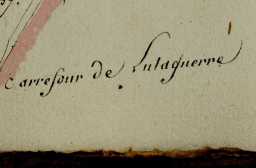 Carrefour de Lutaguerre